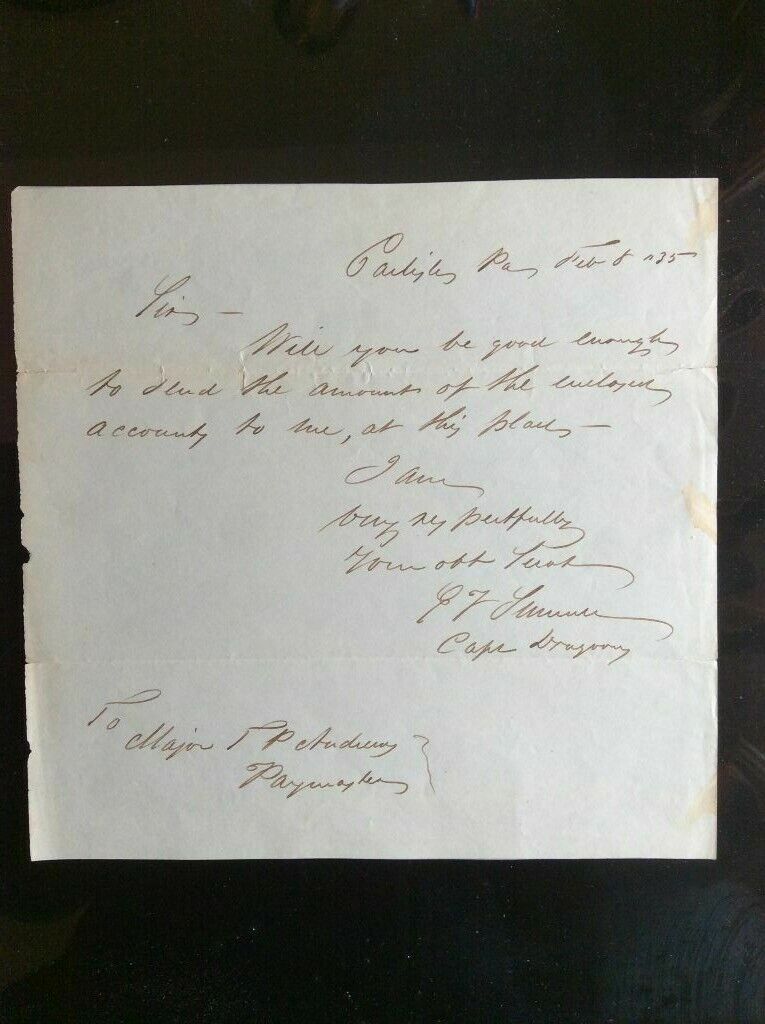 Carlisle Pa Feb 8 "35
Sir, —
Will you be good enough
to send the amount of the enclosed
account to me, at this place —
I am
very respectfully
Your obt Servt
E V Sumner
Capt Dragoons
To
Major T P Andrews
Paymaster